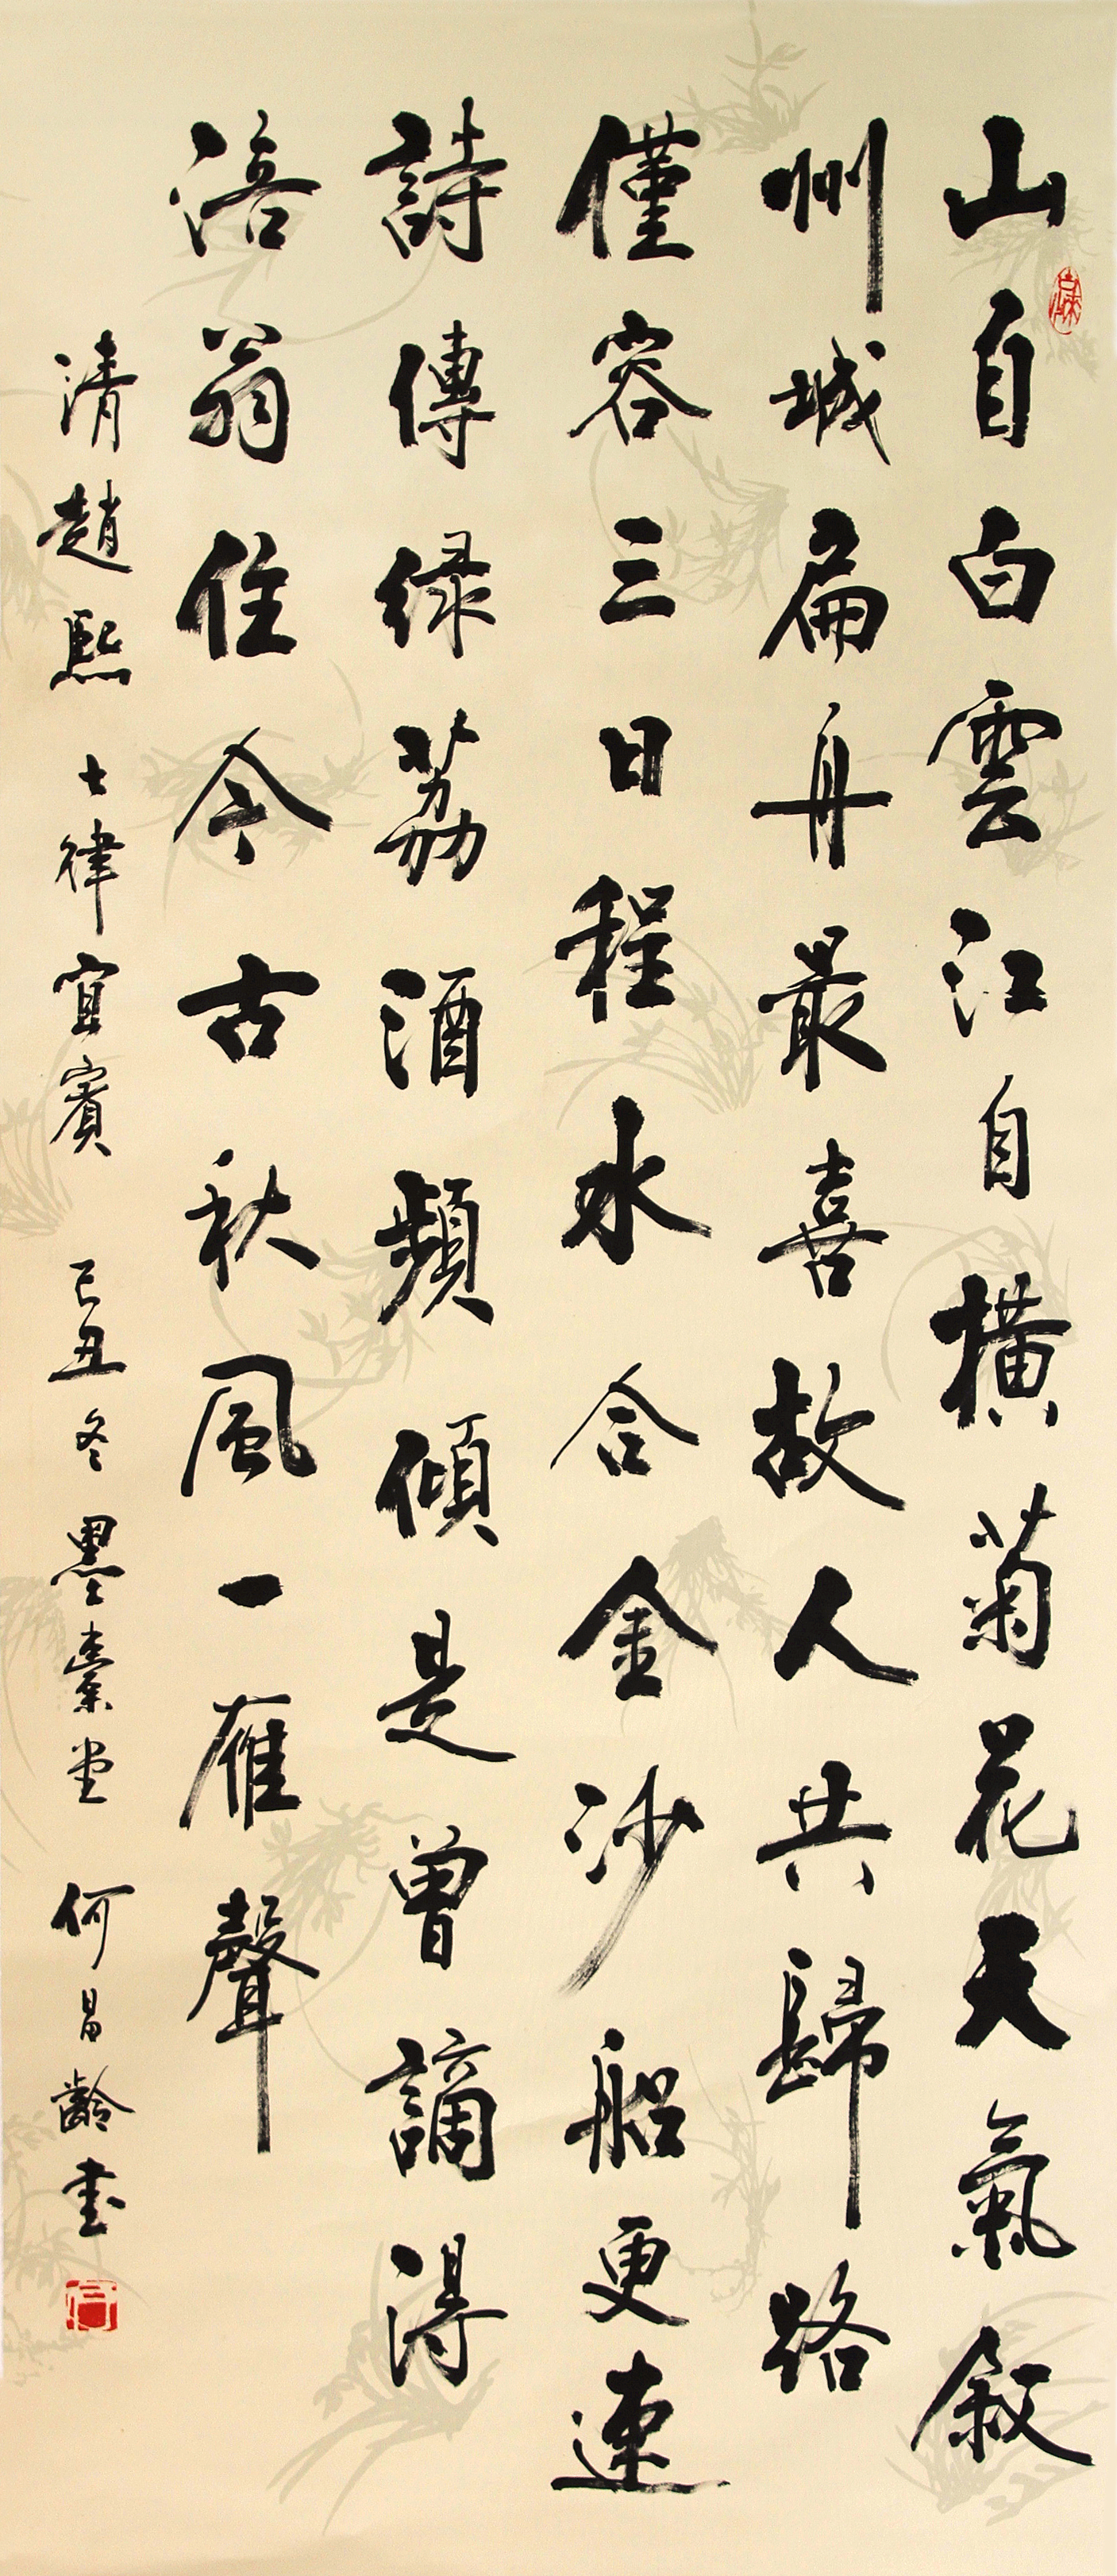 山自白雲江自橫菊花天氣敘
州城扁舟最喜故人共歸路
僅容三日程水合金沙船更速
詩傳绿荔酒頻傾是曾謫得
涪翁住今古秋風一雁聲
清趙熙 七律宜賓 己丑冬墨豪堂 何昌齡書